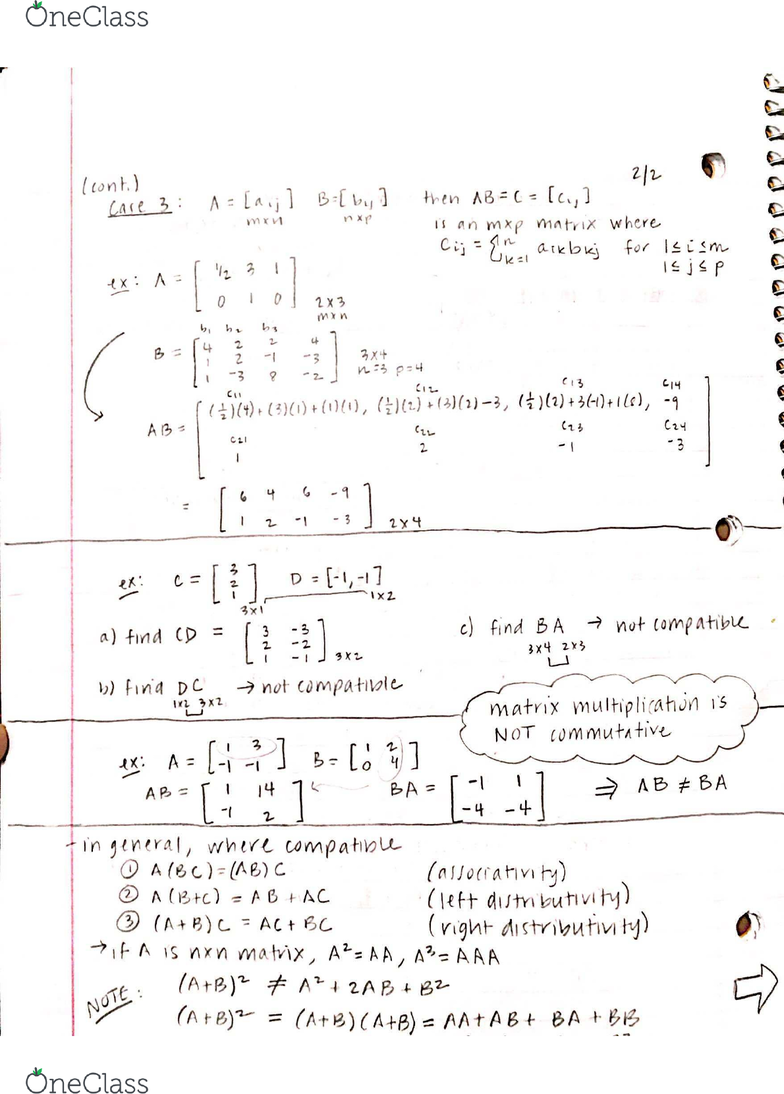 OneClass
2/2
(cont.)
Case 3: A = [aij] B=[bij] then AB = C = [cij]
mxn nxp is an mxp matrix where
Cij = Σⁿk=1 aikbkj for 1≤i≤m
1≤j≤p
ex: A = [ 1/2 3 1
0 1 0 ] 2x3
mxn
b1 b2 b3
B = [ 4 2 2 4
1 2 -1 -3
1 -3 8 -2 ] 3x4
n=3 p=4
C11 C12 C13 C14
AB = [ (1/2)(4)+(3)(1)+(1)(1), (1/2)(2)+(3)(2)-3, (1/2)(2)+3(-1)+1(8), -9
C21 C22 C23 C24
1 2 -1 -3 ]
= [ 6 4 6 -9
1 2 -1 -3 ] 2x4
ex: C = [ 3
2
1 ] D = [-1,-1]
3x1 1x2
a) find CD = [ 3 -3
2 -2
1 -1 ] 3x2
b) find DC → not compatible
1x2 3x2
c) find BA → not compatible
3x4 2x3
matrix multiplication is
NOT commutative
ex: A = [ 1 3
-1 -1 ] B = [ 1 2
0 4 ]
AB = [ 1 14
-1 2 ] BA = [ -1 1
-4 -4 ] ⇒ AB ≠ BA
- in general, where compatible
① A(BC)=(AB)C (associativity)
② A(B+C) = AB + AC (left distributivity)
③ (A+B)C = AC + BC (right distributivity)
→ if A is nxn matrix, A² = AA, A³ = AAA
NOTE: (A+B)² ≠ A² + 2AB + B²
(A+B)² = (A+B)(A+B) = AA + AB + BA + BB
OneClass